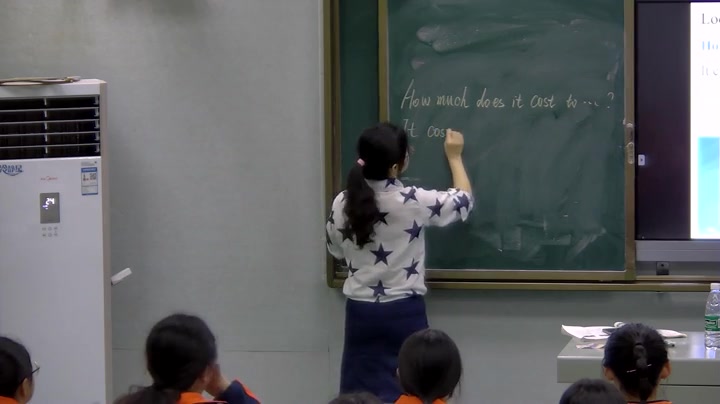 How much does it cost to ... ?
It cos
24
Lo
Ho
It's